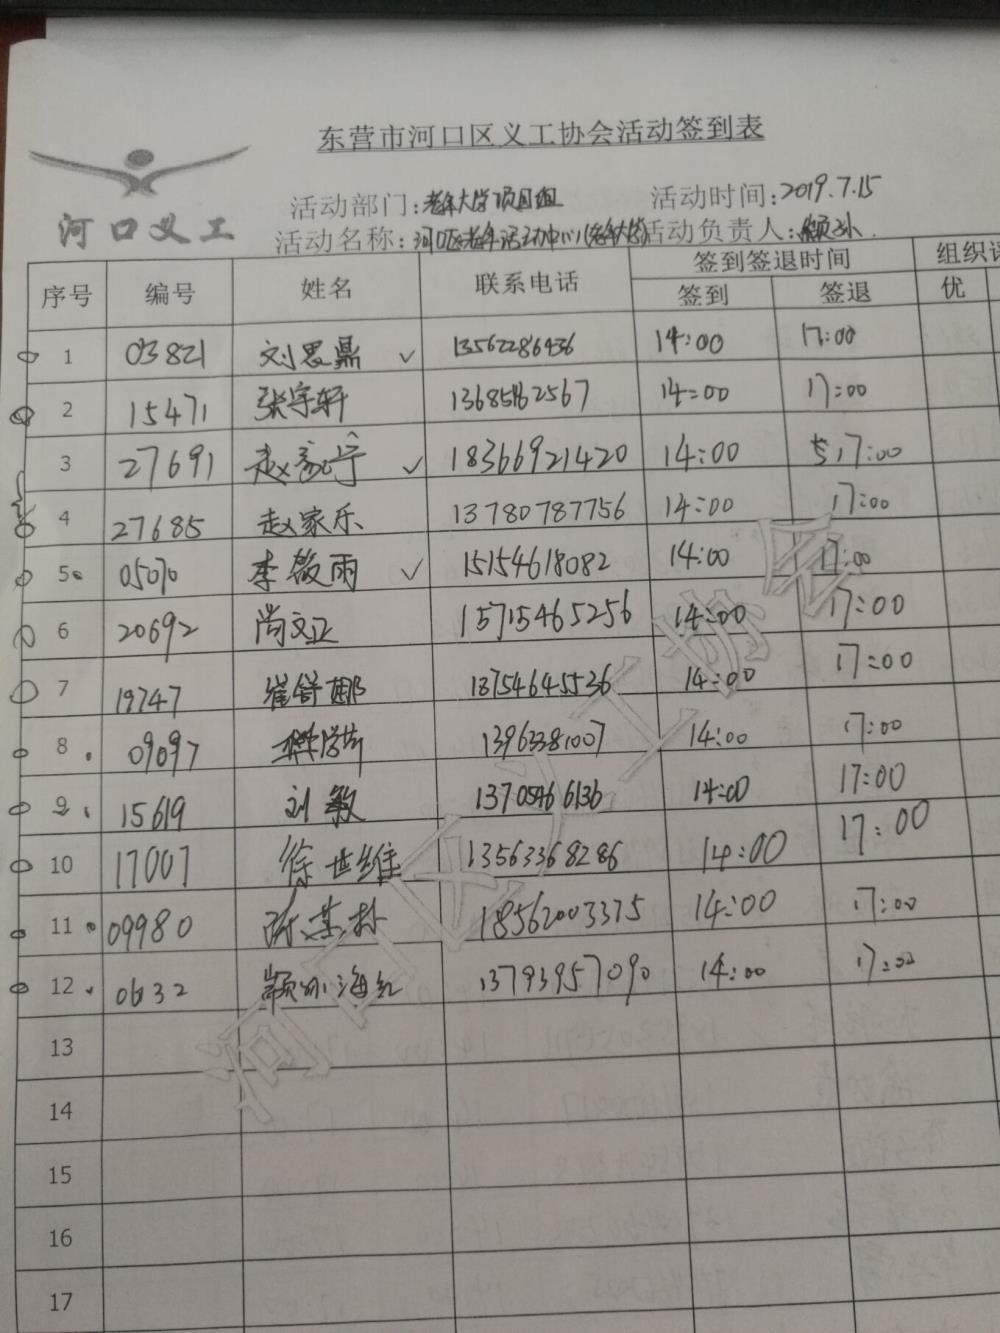 东营市河口区义工协会活动签到表
河口义工
活动部门:老年大学项目组 活动时间:2019.7.15
活动名称:河口区老年活动中心(老年大学) 活动负责人:颛孙
序号 编号 姓名 联系电话 签到签退时间 组织
签到 签退 优
1 03821 刘思鼎 ✓ 13562286436 14:00 17:00
2 15471 张宇轩 14:00 17:00
3 27691 赵 宁 ✓ 18366921420 14:00 17:00
4 27685 赵家乐 13780787756 14:00 17:00
5 05070 李薇雨 ✓ 15154618082 14:00 17:00
6 20692 尚文正 15715465256 14:00 17:00
7 19747 崔舒娜 13754645536 14:00 17:00
8 09097 13963381007 14:00 17:00
9 15619 刘敏 13705466136 14:00 17:00
10 17007 徐世维 13563368286 14:00 17:00
11 09980 陈 18562003375 14:00 17:00
12 0632 颛孙海红 13793957090 14:00 17:00
13
14
15
16
17
河口区义工协会